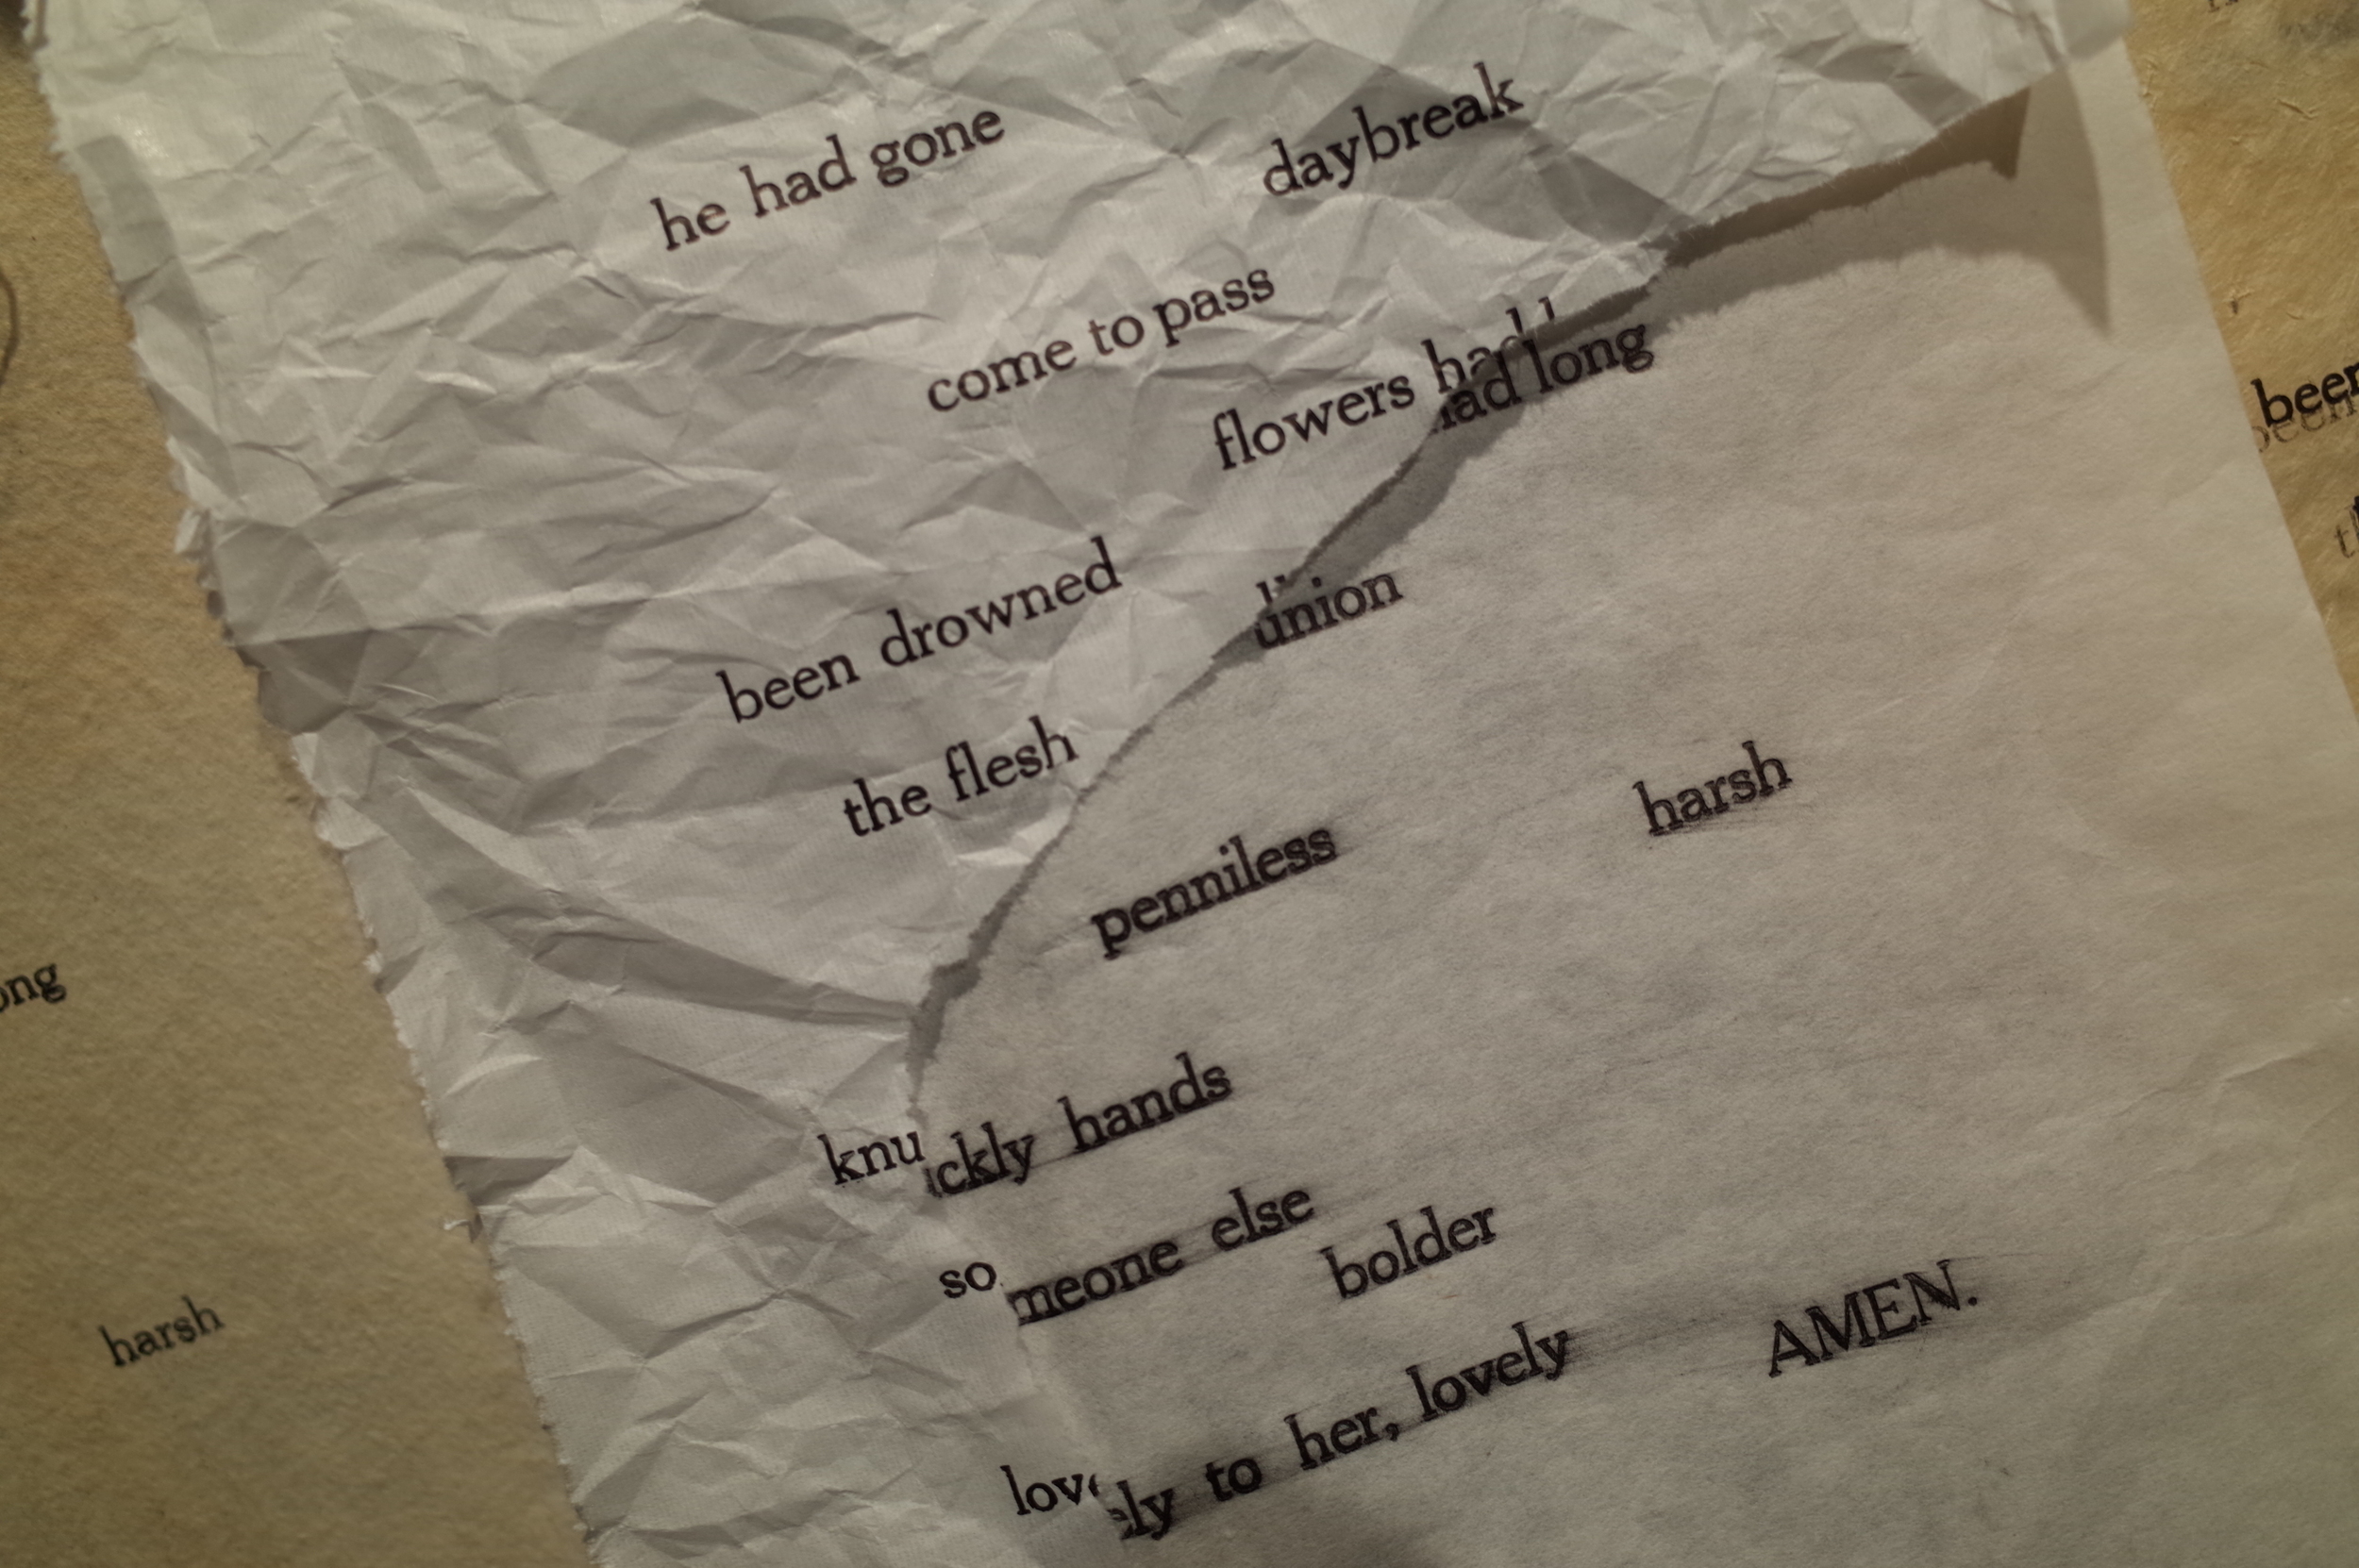 he had gone
daybreak
come to pass
flowers had long
been drowned
union
the flesh
harsh
penniless
knuckly hands
someone else
bolder
lovely to her, lovely
AMEN.
been
harsh